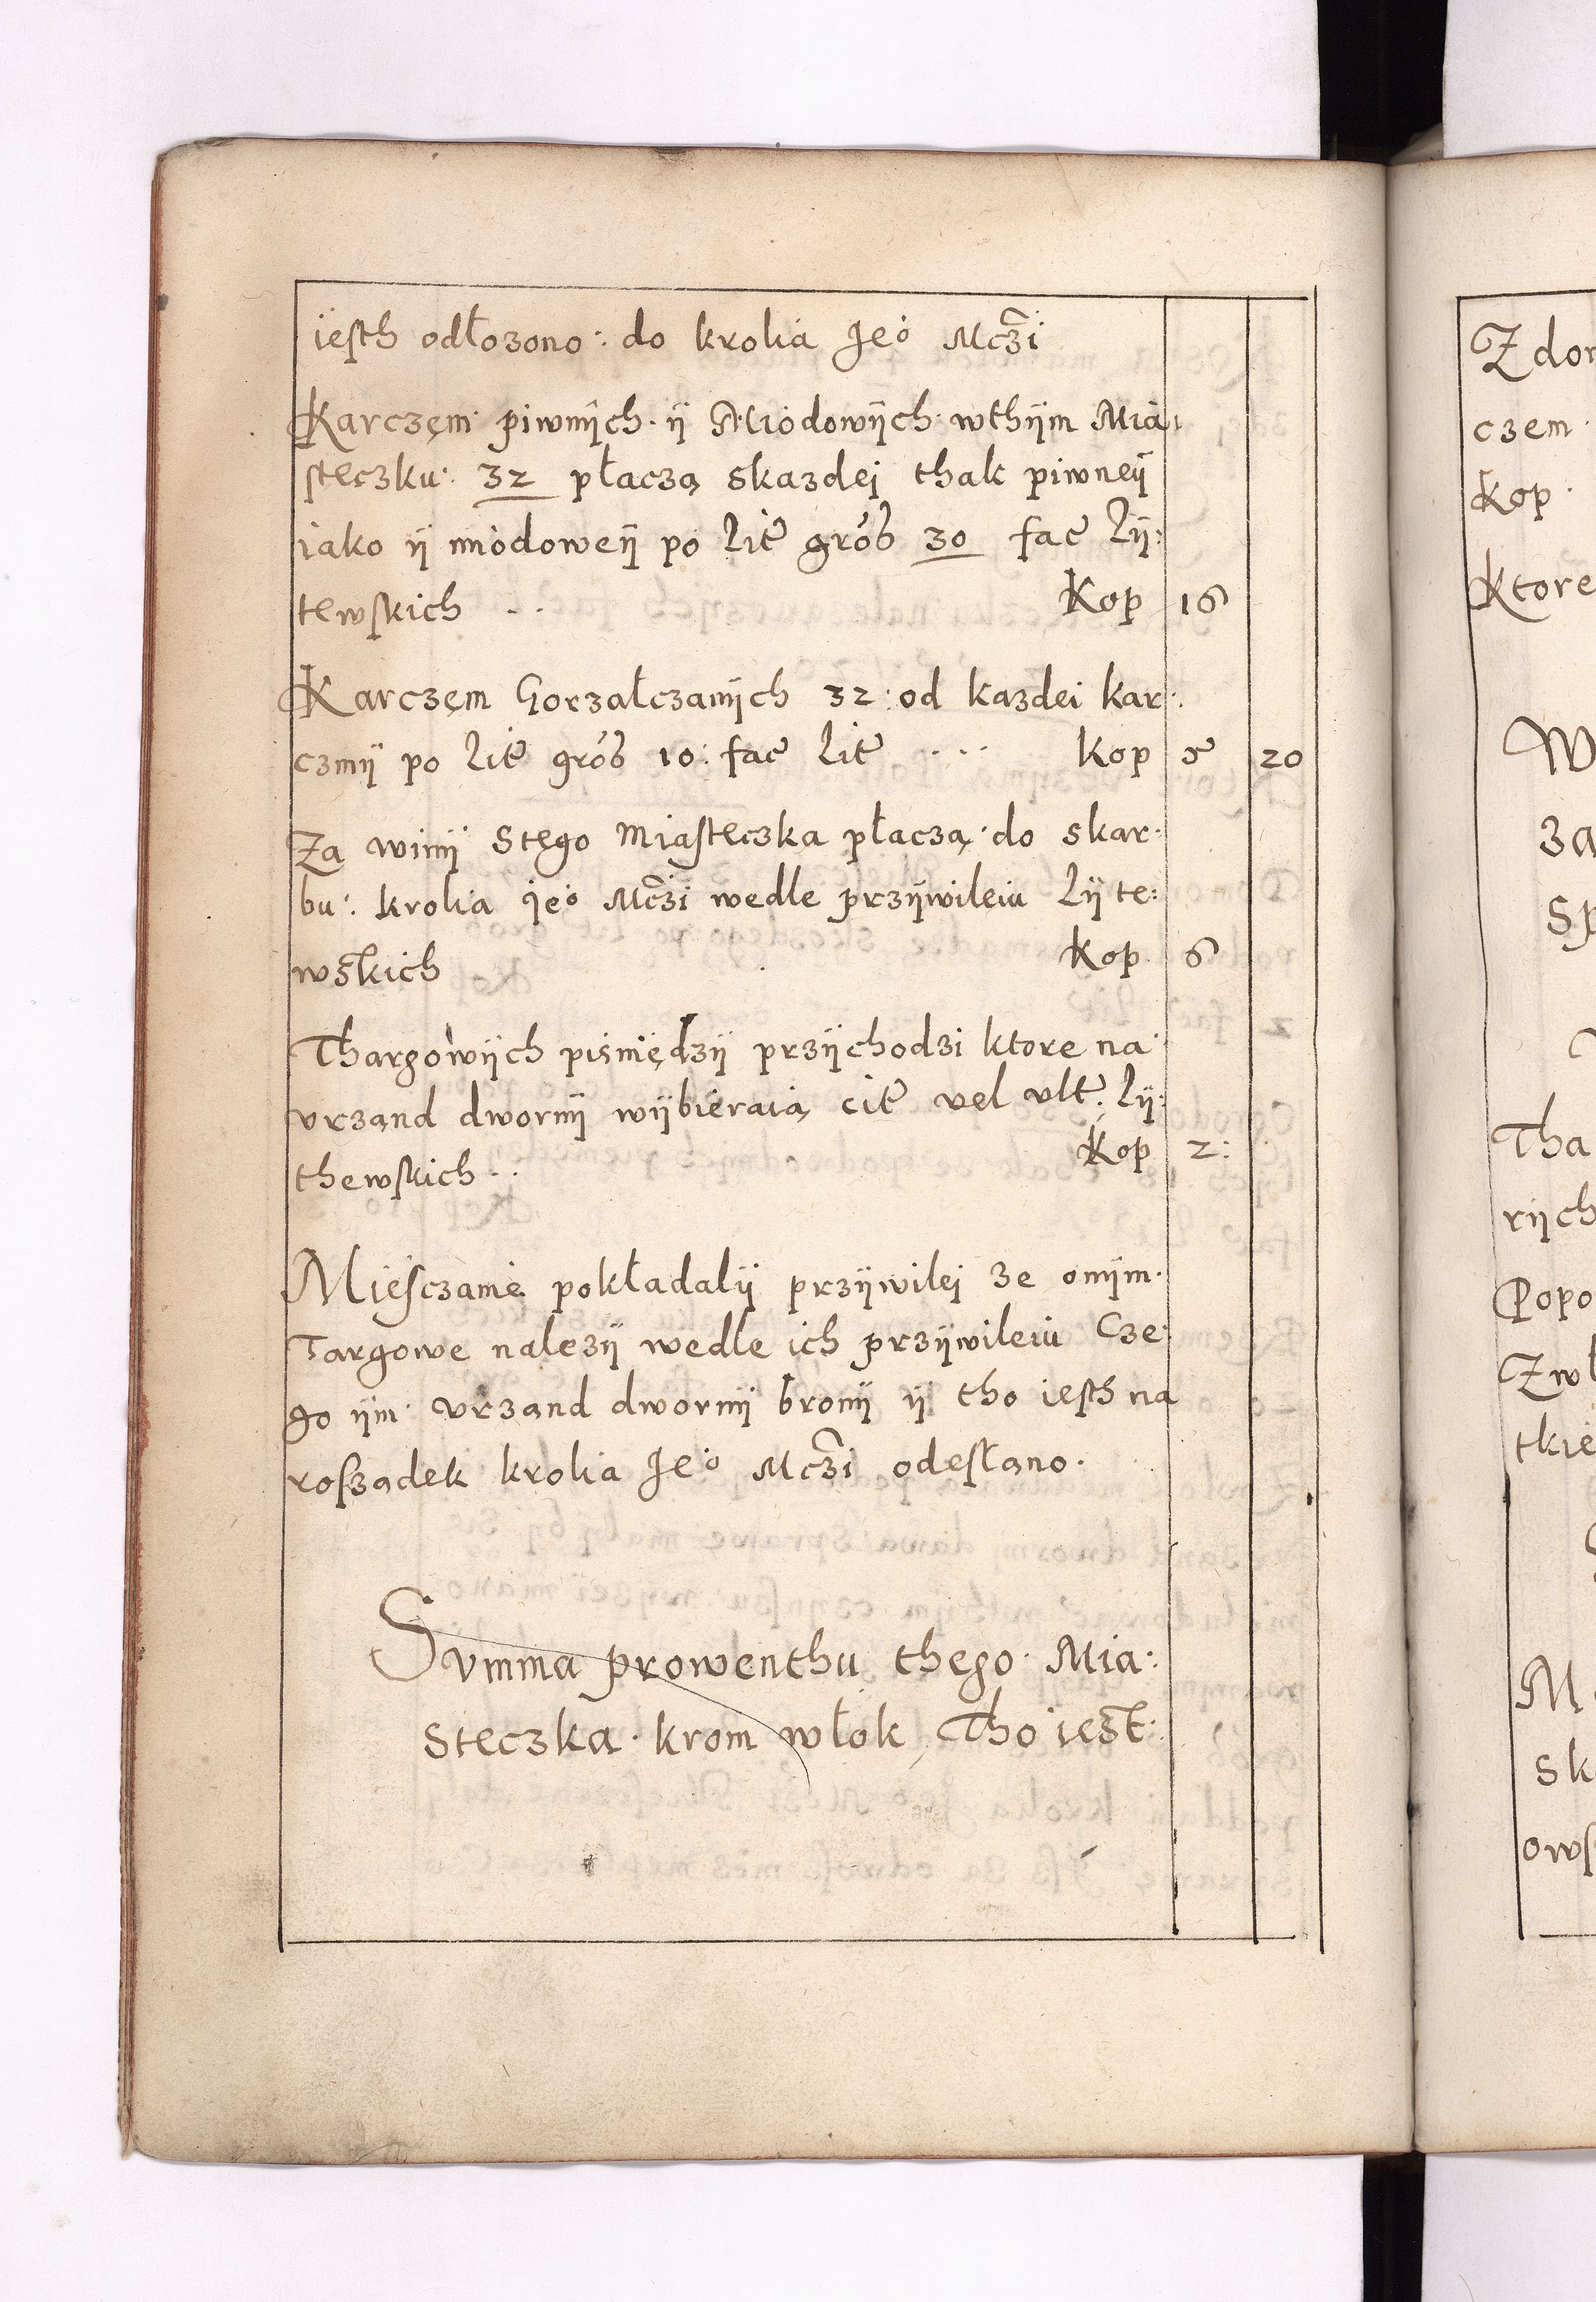 iesth odłozono: do krolia Jeo Mczi
Karczem piwnÿch ÿ Miodowÿch wthÿm Mia
steczku: 32 płaczą skazdej thak piwneÿ
iako ÿ miodoweÿ po Lit grośs 30 fac Lÿ:
tewskich .. Kop 16
Karczem Gorzałczanÿch 32: od kazdei kar:
czmÿ po Lit grośs 10: fac Lit .... Kop 5 20
Za winÿ stego Miasteczka płaczą do skar:
bu: krolia ieo Mczi wedle przÿwileiu Lÿte:
wskich Kop 6
Thargowÿch pieniędzÿ przÿchodzi ktore na
vrzand dwornÿ wÿbieraią cit vel vlt. Lÿ:
thewskich .. Kop 2:
Miesczanie pokładalÿ przÿwilej ze onÿm
Targowe nalezÿ wedle ich przÿwileiu Cze:
go ÿm vrzand dwornÿ bronÿ ÿ tho iesth na
roszadek krolia Jeo Mczi odesłano.
Svmma prowenthu thego Mia:
steczka krom włok Tho iest:
Zdor
czem
Kop
Ktore
W
za
Sp
Tha
rÿch
Popo
Zwł
tkie
M
sk
ows